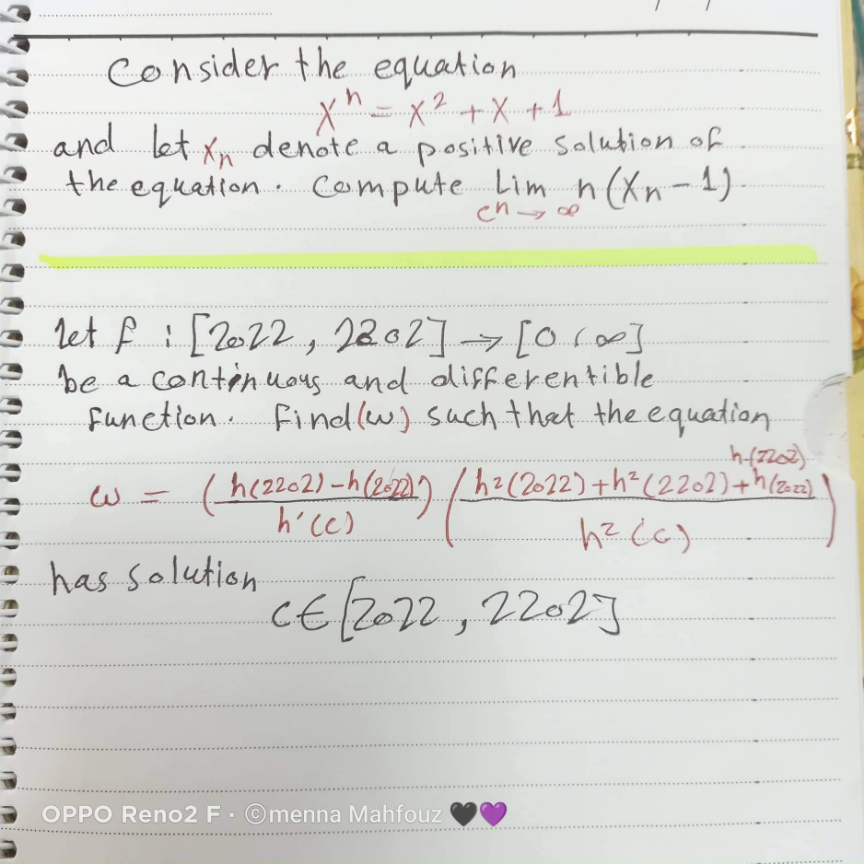 Consider the equation
xⁿ = x² + x + 1
and let xₙ denote a positive solution of
the equation. Compute Lim n(xₙ - 1)
n → ∞
let f : [2022, 2202] → [0, ∞]
be a continuous and differentible
function. Find (ω) such that the equation
ω = (h(2202) - h(2022) / h'(c)) (h²(2022) + h²(2202) + h(2022) h(2202) / h²(c))
has solution
c ∈ [2022, 2202]
OPPO Reno2 F · ©menna Mahfouz 🖤💜